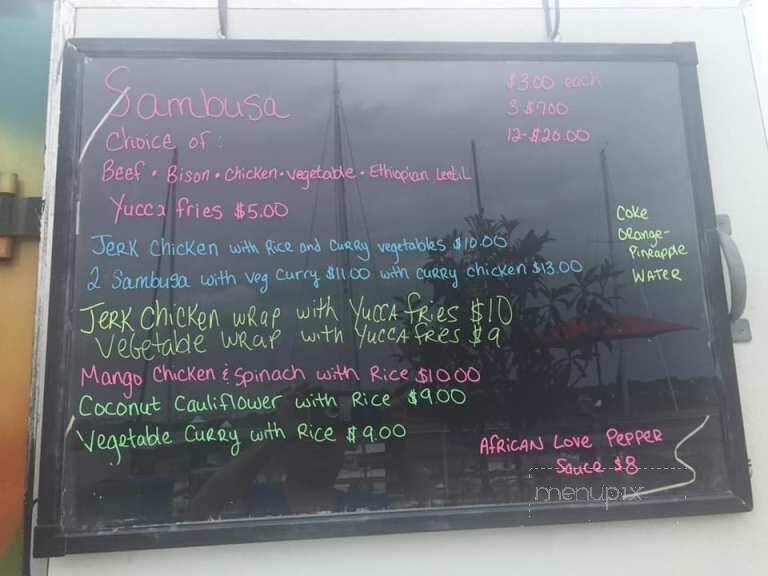 Sambusa
$3.00 each
3-$7.00
12-$20.00
Choice of:
Beef • Bison • Chicken • Vegetable • Ethiopian Lentil
Yucca fries $5.00
Jerk Chicken with Rice and Curry vegetables $10.00
2 Sambusa with veg Curry $11.00 with curry chicken $13.00
Coke
Orange-
Pineapple
Water
Jerk Chicken wrap with Yucca fries $10
Vegetable wrap with Yucca fries $9
Mango Chicken & Spinach with Rice $10.00
Coconut Cauliflower with Rice $9.00
Vegetable Curry with Rice $9.00
African Love Pepper
Sauce $8
menupix